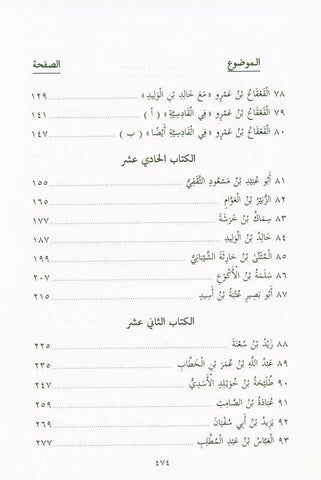 الموضوع الصفحة
٧٨ الْقَعْقَاعُ بْنُ عَمْرٍو « مَعَ خَالِدِ بْنِ الْوَلِيدِ » ١٢٩
٧٩ الْقَعْقَاعُ بْنُ عَمْرٍو « فِي الْقَادِسِيَّةِ » ( أ ) ١٤١
٨٠ الْقَعْقَاعُ بْنُ عَمْرٍو « فِي الْقَادِسِيَّةِ أَيْضًا » ( ب ) ١٤٧
الكتاب الحادي عشر
٨١ أَبُو عُبَيْدِ بْنُ مَسْعُودٍ الثَّقَفِيُّ ١٥٥
٨٢ الزُّبَيْرُ بْنُ الْعَوَّامِ ١٦٥
٨٣ سِمَاكُ بْنُ خَرَشَةَ ١٧٧
٨٤ خَالِدُ بْنُ الْوَلِيدِ ١٨٧
٨٥ الْمُثَنَّى بْنُ حَارِثَةَ الشَّيْبَانِيُّ ١٩٩
٨٦ سَلَمَةُ بْنُ الْأَكْوَعِ ٢٠٧
٨٧ أَبُو بَصِيرٍ عُتْبَةُ بْنُ أَسِيدٍ ٢١٥
الكتاب الثاني عشر
٨٨ زَيْدُ بْنُ سُعْنَةَ ٢٢٥
٨٩ عَبْدُ اللَّهِ بْنُ عُمَرَ بْنِ الْخَطَّابِ ٢٣٥
٩٠ طُلَيْحَةُ بْنُ خُوَيْلِدٍ الْأَسَدِيُّ ٢٤٧
٩١ عُبَادَةُ بْنُ الصَّامِتِ ٢٥٩
٩٢ يَزِيدُ بْنُ أَبِي سُفْيَانَ ٢٦٩
٩٣ الْعَبَّاسُ بْنُ عَبْدِ الْمُطَّلِبِ ٢٧٧
٤٧٤